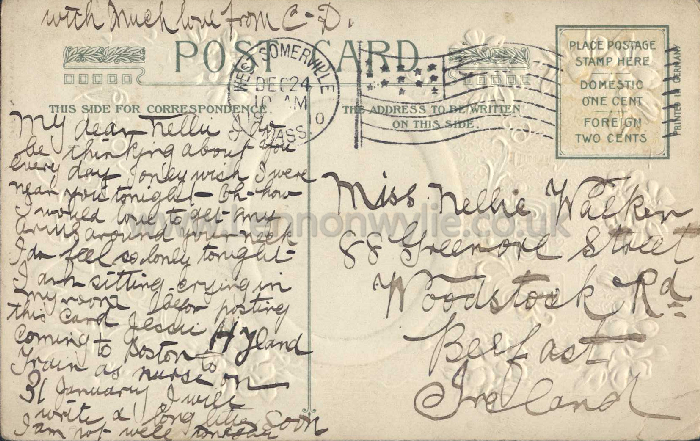 with much love from C-D.
POST CARD
WEST SOMERVILLE
DEC 24
AM
MASS.
PLACE POSTAGE
STAMP HERE
DOMESTIC
ONE CENT
FOREIGN
TWO CENTS
PRINTED IN GERMANY
THIS SIDE FOR CORRESPONDENCE
THE ADDRESS TO BE WRITTEN
ON THIS SIDE
My dear Nellie I do
be thinking about you
every day I only wish I were
near you tonight - Oh how
I would love to get my
arms around your neck
I do feel so lonely tonight -
I am sitting crying in
my room before posting
this card Jessie Hyland
coming to Boston to
train as nurse on
31 January I will
write a long letter soon
I am not well
Miss Nellie Walker
88 Greenore Street
Woodstock Rd
Belfast
Ireland
www.lennonwylie.co.uk